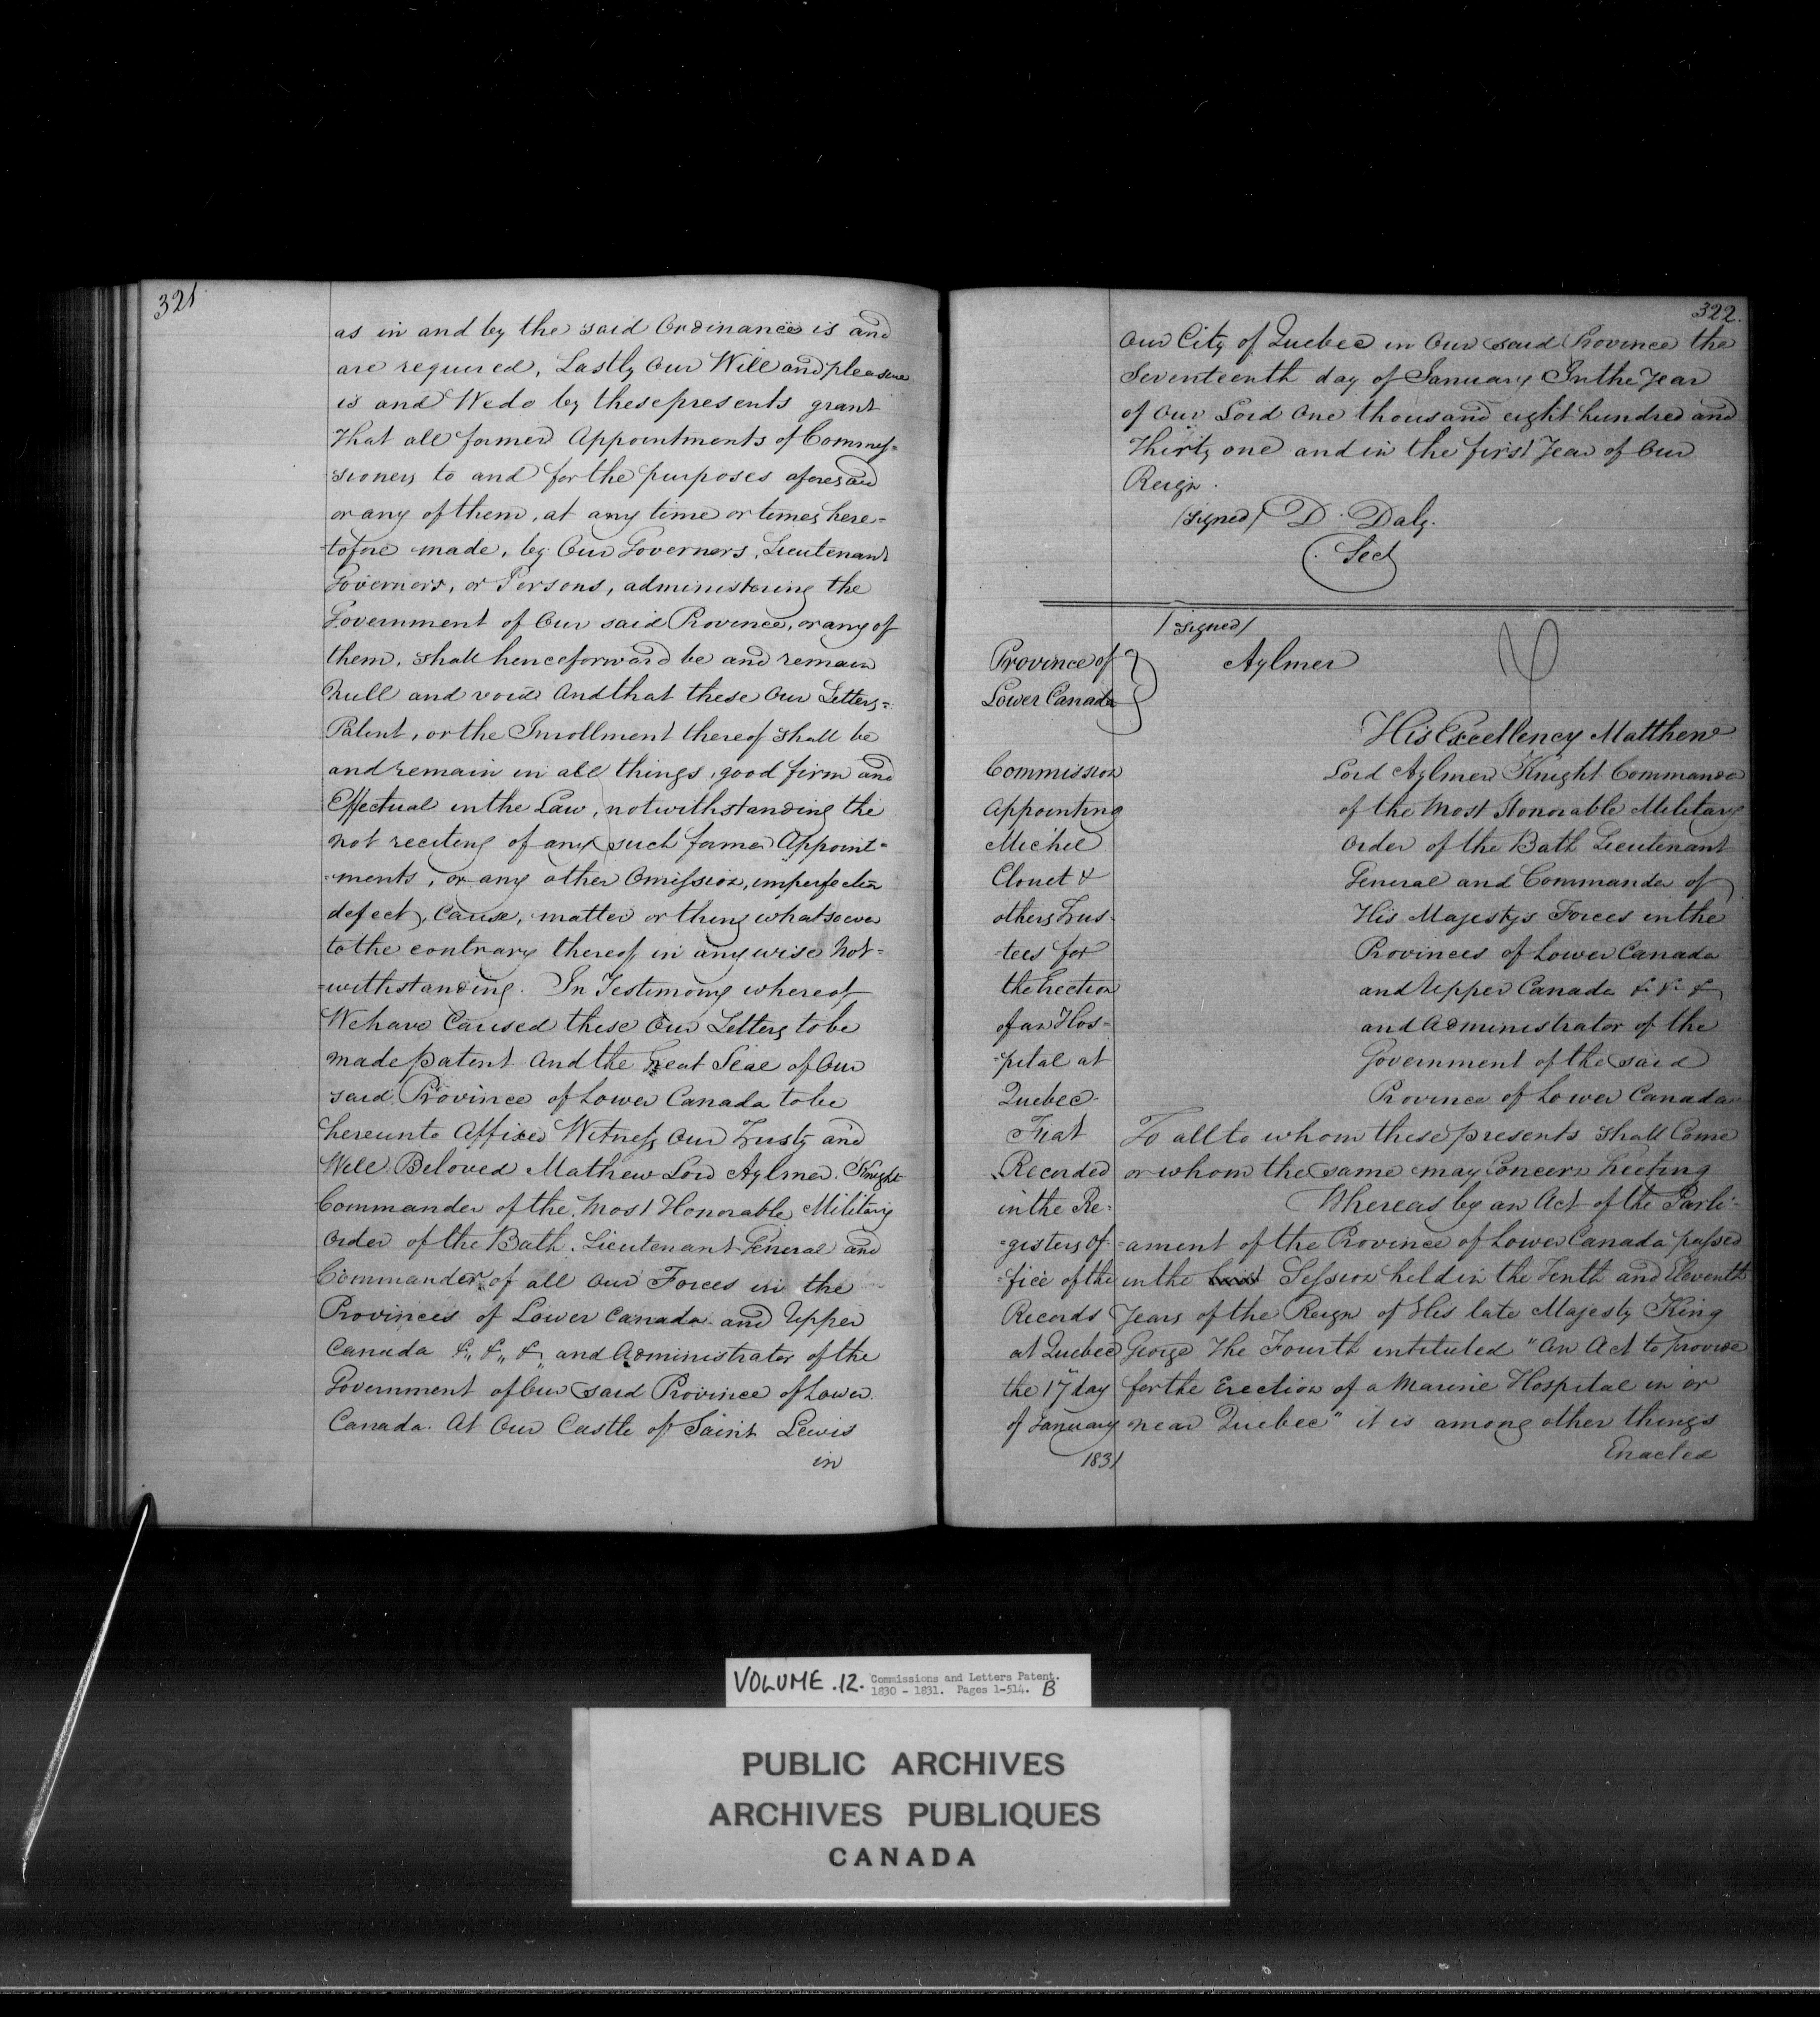 321
as in and by the said Ordinance is and
are required, Lastly Our Will and pleasure
is and We do by these presents grant
that all former Appointments of Commis=
sioners to and for the purposes aforesaid
or any of them, at any time or times here=
tofore made, by Our Governors, Lieutenant
Governors, or Persons, administering the
Government of Our said Province, or any of
them, shall henceforward be and remain
Null and void And that these Our Letters=
Patent, or the Inrollment thereof shall be
and remain in all things, good firm and
Effectual in the Law, notwithstanding the
not reciting of any such former Appoint=
=ments, or any other Omission, imperfection
defect, Cause, matter or thing whatsoever
to the contrary thereof in any wise Not=
=withstanding. In Testimony whereof
We have Caused these Our Letters to be
made patent And the Great Seal of Our
said Province of Lower Canada to be
hereunto Affixed Witness Our Trusty and
Well Beloved Mathew Lord Aylmer. Knight
Commander of the Most Honorable Military
Order of the Bath. Lieutenant General and
Commander of all Our Forces in the
Provinces of Lower Canada and Upper
Canada &,, &,, &,, and Administrator of the
Government of Our said Province of Lower
Canada. At Our Castle of Saint Lewis
in
322.
Our City of Quebec in Our said Province the
Seventeenth day of January In the Year
of Our Lord One thousand eight hundred and
Thirty one and in the first Year of Our
Reign.
/signed/ D. Daly.
Sec
/signed/
Province of
Lower Canada
Aylmer
His Excellency Matthew
Lord Aylmer Knight Commander
of the Most Honorable Military
Order of the Bath Lieutenant
General and Commander of
His Majestys Forces in the
Provinces of Lower Canada
and Upper Canada &. &. &
and Administrator of the
Government of the said
Province of Lower Canada
Commission
Appointing
Michel
Clouet &
others Trus-
-tees for
the Erection
of an Hos=
-pital at
Quebec.
Fiat
Recorded
in the Re=
=gisters of
=fice of the
Records
at Quebec
the 17th day
of January
1831
To all to whom these presents shall Come
or whom the same may Concern Greeting
Whereas by an Act of the Parli-
=ament of the Province of Lower Canada passed
in the Session held in the Tenth and Eleventh
Years of the Reign of His late Majesty King
George The Fourth intituled "An Act to provide
for the Erection of a Marine Hospital in or
near Quebec" it is among other things
Enacted
VOLUME .12. Commissions and Letters Patent.
1830 - 1831. Pages 1-514. B
PUBLIC ARCHIVES
ARCHIVES PUBLIQUES
CANADA